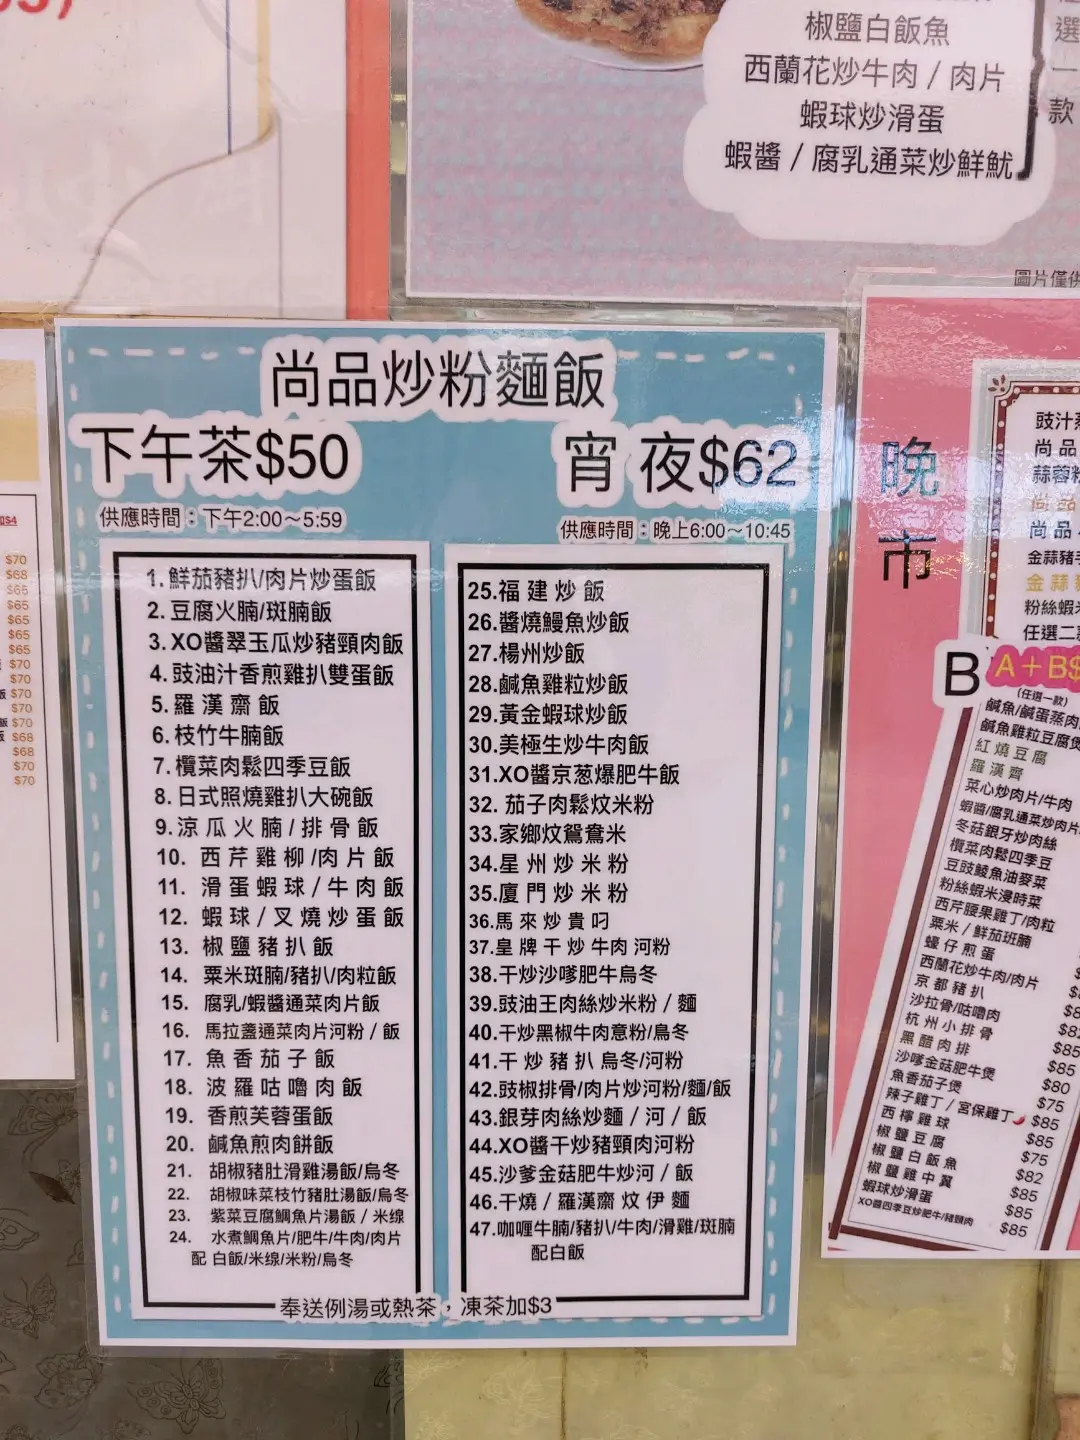 椒鹽白飯魚
西蘭花炒牛肉 / 肉片
蝦球炒滑蛋
蝦醬 / 腐乳通菜炒鮮魷
選
一
款
圖片僅供
尚品炒粉麵飯
下午茶$50
供應時間：下午2:00～5:59
宵 夜$62
供應時間：晚上6:00～10:45
1.鮮茄豬扒/肉片炒蛋飯
2.豆腐火腩/斑腩飯
3.XO醬翠玉瓜炒豬頸肉飯
4.豉油汁香煎雞扒雙蛋飯
5.羅漢齋飯
6.枝竹牛腩飯
7.欖菜肉鬆四季豆飯
8.日式照燒雞扒大碗飯
9.涼瓜火腩/排骨飯
10. 西芹雞柳/肉片飯
11. 滑蛋蝦球/牛肉飯
12. 蝦球/叉燒炒蛋飯
13. 椒鹽豬扒飯
14. 粟米斑腩/豬扒/肉粒飯
15. 腐乳/蝦醬通菜肉片飯
16. 馬拉盞通菜肉片河粉 / 飯
17. 魚香茄子飯
18. 波羅咕嚕肉飯
19. 香煎芙蓉蛋飯
20. 鹹魚煎肉餅飯
21. 胡椒豬肚滑雞湯飯/烏冬
22. 胡椒味菜枝竹豬肚湯飯/烏冬
23. 紫菜豆腐鯛魚片湯飯 / 米線
24. 水煮鯛魚片/肥牛/牛肉/肉片
配 白飯/米线/米粉/烏冬
25.福建炒飯
26.醬燒鰻魚炒飯
27.楊州炒飯
28.鹹魚雞粒炒飯
29.黃金蝦球炒飯
30.美極生炒牛肉飯
31.XO醬京葱爆肥牛飯
32. 茄子肉鬆炆米粉
33.家鄉炆鴛鴦米
34.星州炒米粉
35.廈門炒米粉
36.馬來炒貴叼
37.皇牌干炒牛肉 河粉
38.干炒沙嗲肥牛烏冬
39.豉油王肉絲炒米粉 / 麵
40.干炒黑椒牛肉意粉/烏冬
41.干炒豬扒 烏冬/河粉
42.豉椒排骨/肉片炒河粉/麵/飯
43.銀芽肉絲炒麵 / 河 / 飯
44.XO醬干炒豬頸肉河粉
45.沙爹金菇肥牛炒河 / 飯
46.干燒 / 羅漢齋 炆伊麵
47.咖喱牛腩/豬扒/牛肉/滑雞/斑腩
配白飯
奉送例湯或熱茶，凍茶加$3
$70
$68
$65
$65
$65
$65
$65
$70
$70
飯 $70
$70
飯 $70
$68
$68
$70
$70
晚市
豉汁
尚品
蒜蓉粉
尚品
尚品
金蒜豬手
金蒜
粉絲蝦米
任選二款
B
A＋B$
(任選一款)
鹹魚/鹹蛋蒸肉
鹹魚雞粒豆腐煲
紅燒豆腐
羅漢齋
菜心炒肉片/牛肉
蝦醬/腐乳通菜炒肉片
冬菇銀牙炒肉絲
欖菜肉鬆四季豆
豆豉鯪魚油麥菜
粉絲蝦米浸時菜
西芹腰果雞丁/肉粒
粟米 / 鮮茄班腩
蠔仔煎蛋
西蘭花炒牛肉/肉片
京都豬扒
沙拉骨/咕嚕肉
杭州小排骨
黑醋肉排 $85
沙嗲金菇肥牛煲 $85
魚香茄子煲 $80
辣子雞丁 / 宮保雞丁 $75
西檸雞球 $85
椒鹽豆腐 $85
椒鹽白飯魚 $75
椒鹽雞中翼 $82
蝦球炒滑蛋 $85
XO醬四季豆炒肥牛/豬頸肉 $85
$85